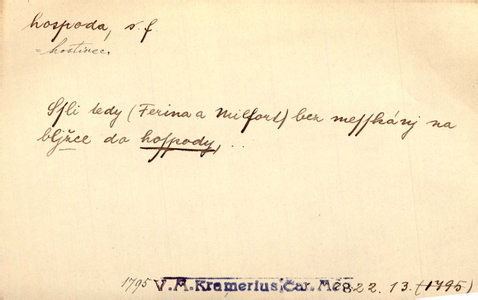 hospoda, s. f
= hostinec.
Sſli tedy (Ferina a Milfort) bez meſſkánj na
bljzce do hoſpody, ..
1795 V. M. Kramerius, Čar. Mes. 22. 13. (1795)